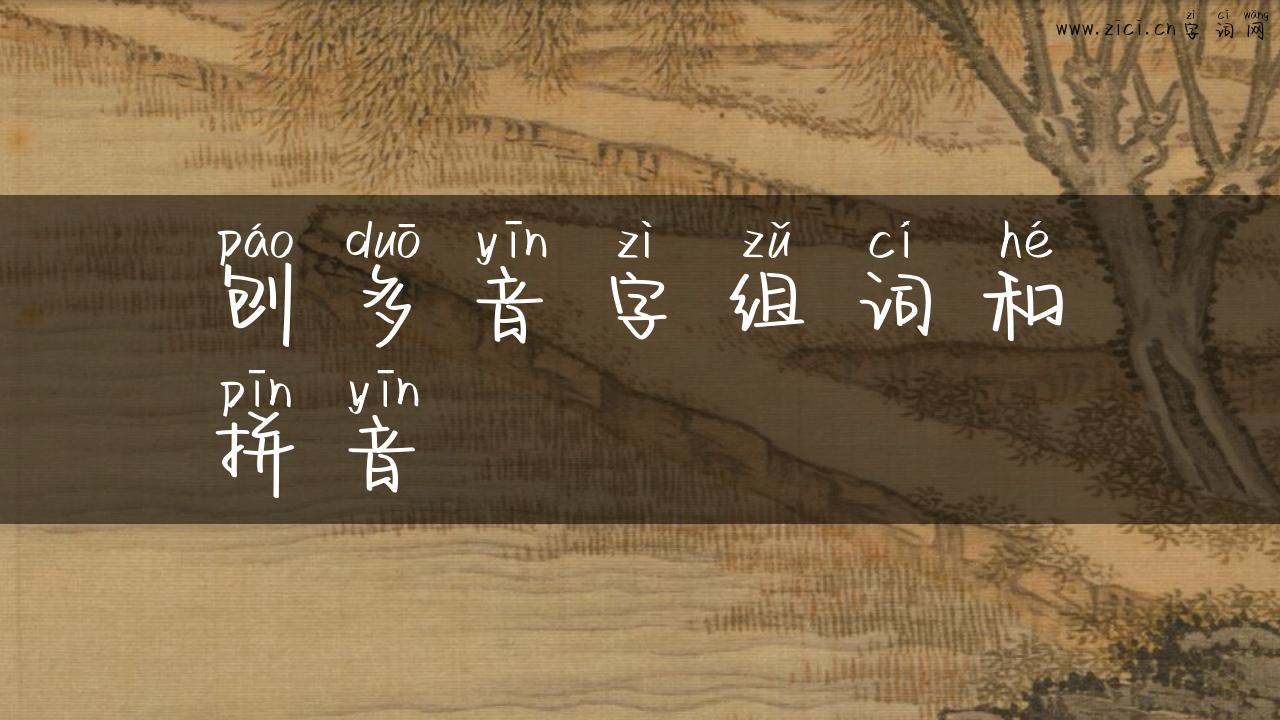 zì cí wǎng
www.zici.cn字词网
páo duō yīn zì zǔ cí hé
刨多音字组词和
pīn yīn
拼音